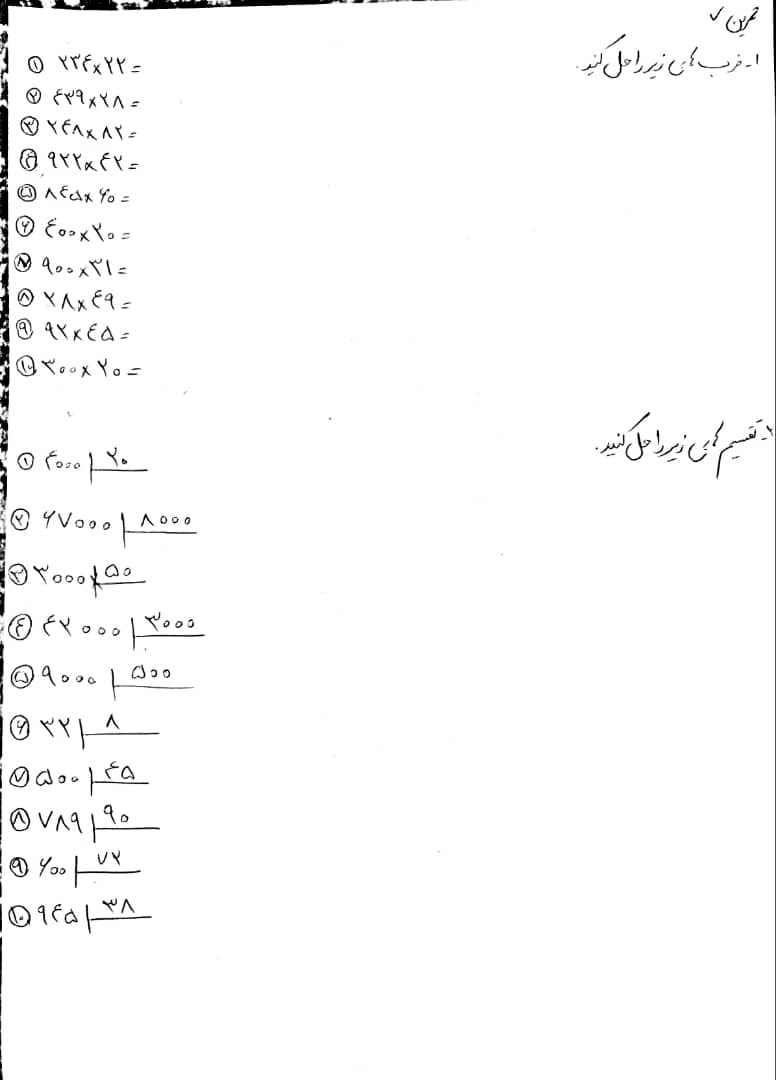 تمرین ✓
۱- ضرب های زیر را حل کنید.
① ۲۳۴×۲۲=
② ۴۳۹×۲۸=
③ ۲۴۸×۸۲=
④ ۹۲۲×۴۲=
⑤ ۸۴۵×۶۰=
⑥ ۴۰۰×۲۰=
⑦ ۹۰۰×۳۱=
⑧ ۲۸×۴۹=
⑨ ۹۲×۴۵=
⑩ ۳۰۰×۲۰=
۲- تقسیم های زیر را حل کنید.
① ۴۰۰۰ | ۲۰
② ۶۷۰۰۰ | ۸۰۰۰
③ ۳۰۰۰ | ۵۰
④ ۴۲۰۰۰ | ۳۰۰۰
⑤ ۹۰۰۰ | ۵۰۰
⑥ ۳۲ | ۸
⑦ ۵۰۰ | ۴۵
⑧ ۷۸۹ | ۹۰
⑨ ۶۰۰ | ۷۲
⑩ ۹۴۵ | ۳۸